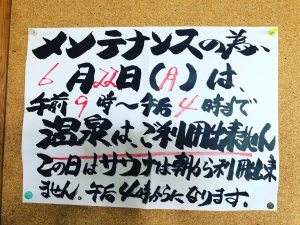 メンテナンスの為、
6月22日(月)は、
午前9時〜午后4時まで
温泉は、ご利用出来ません
この日はサウナは朝から利用出来
ません。午后4時からになります。